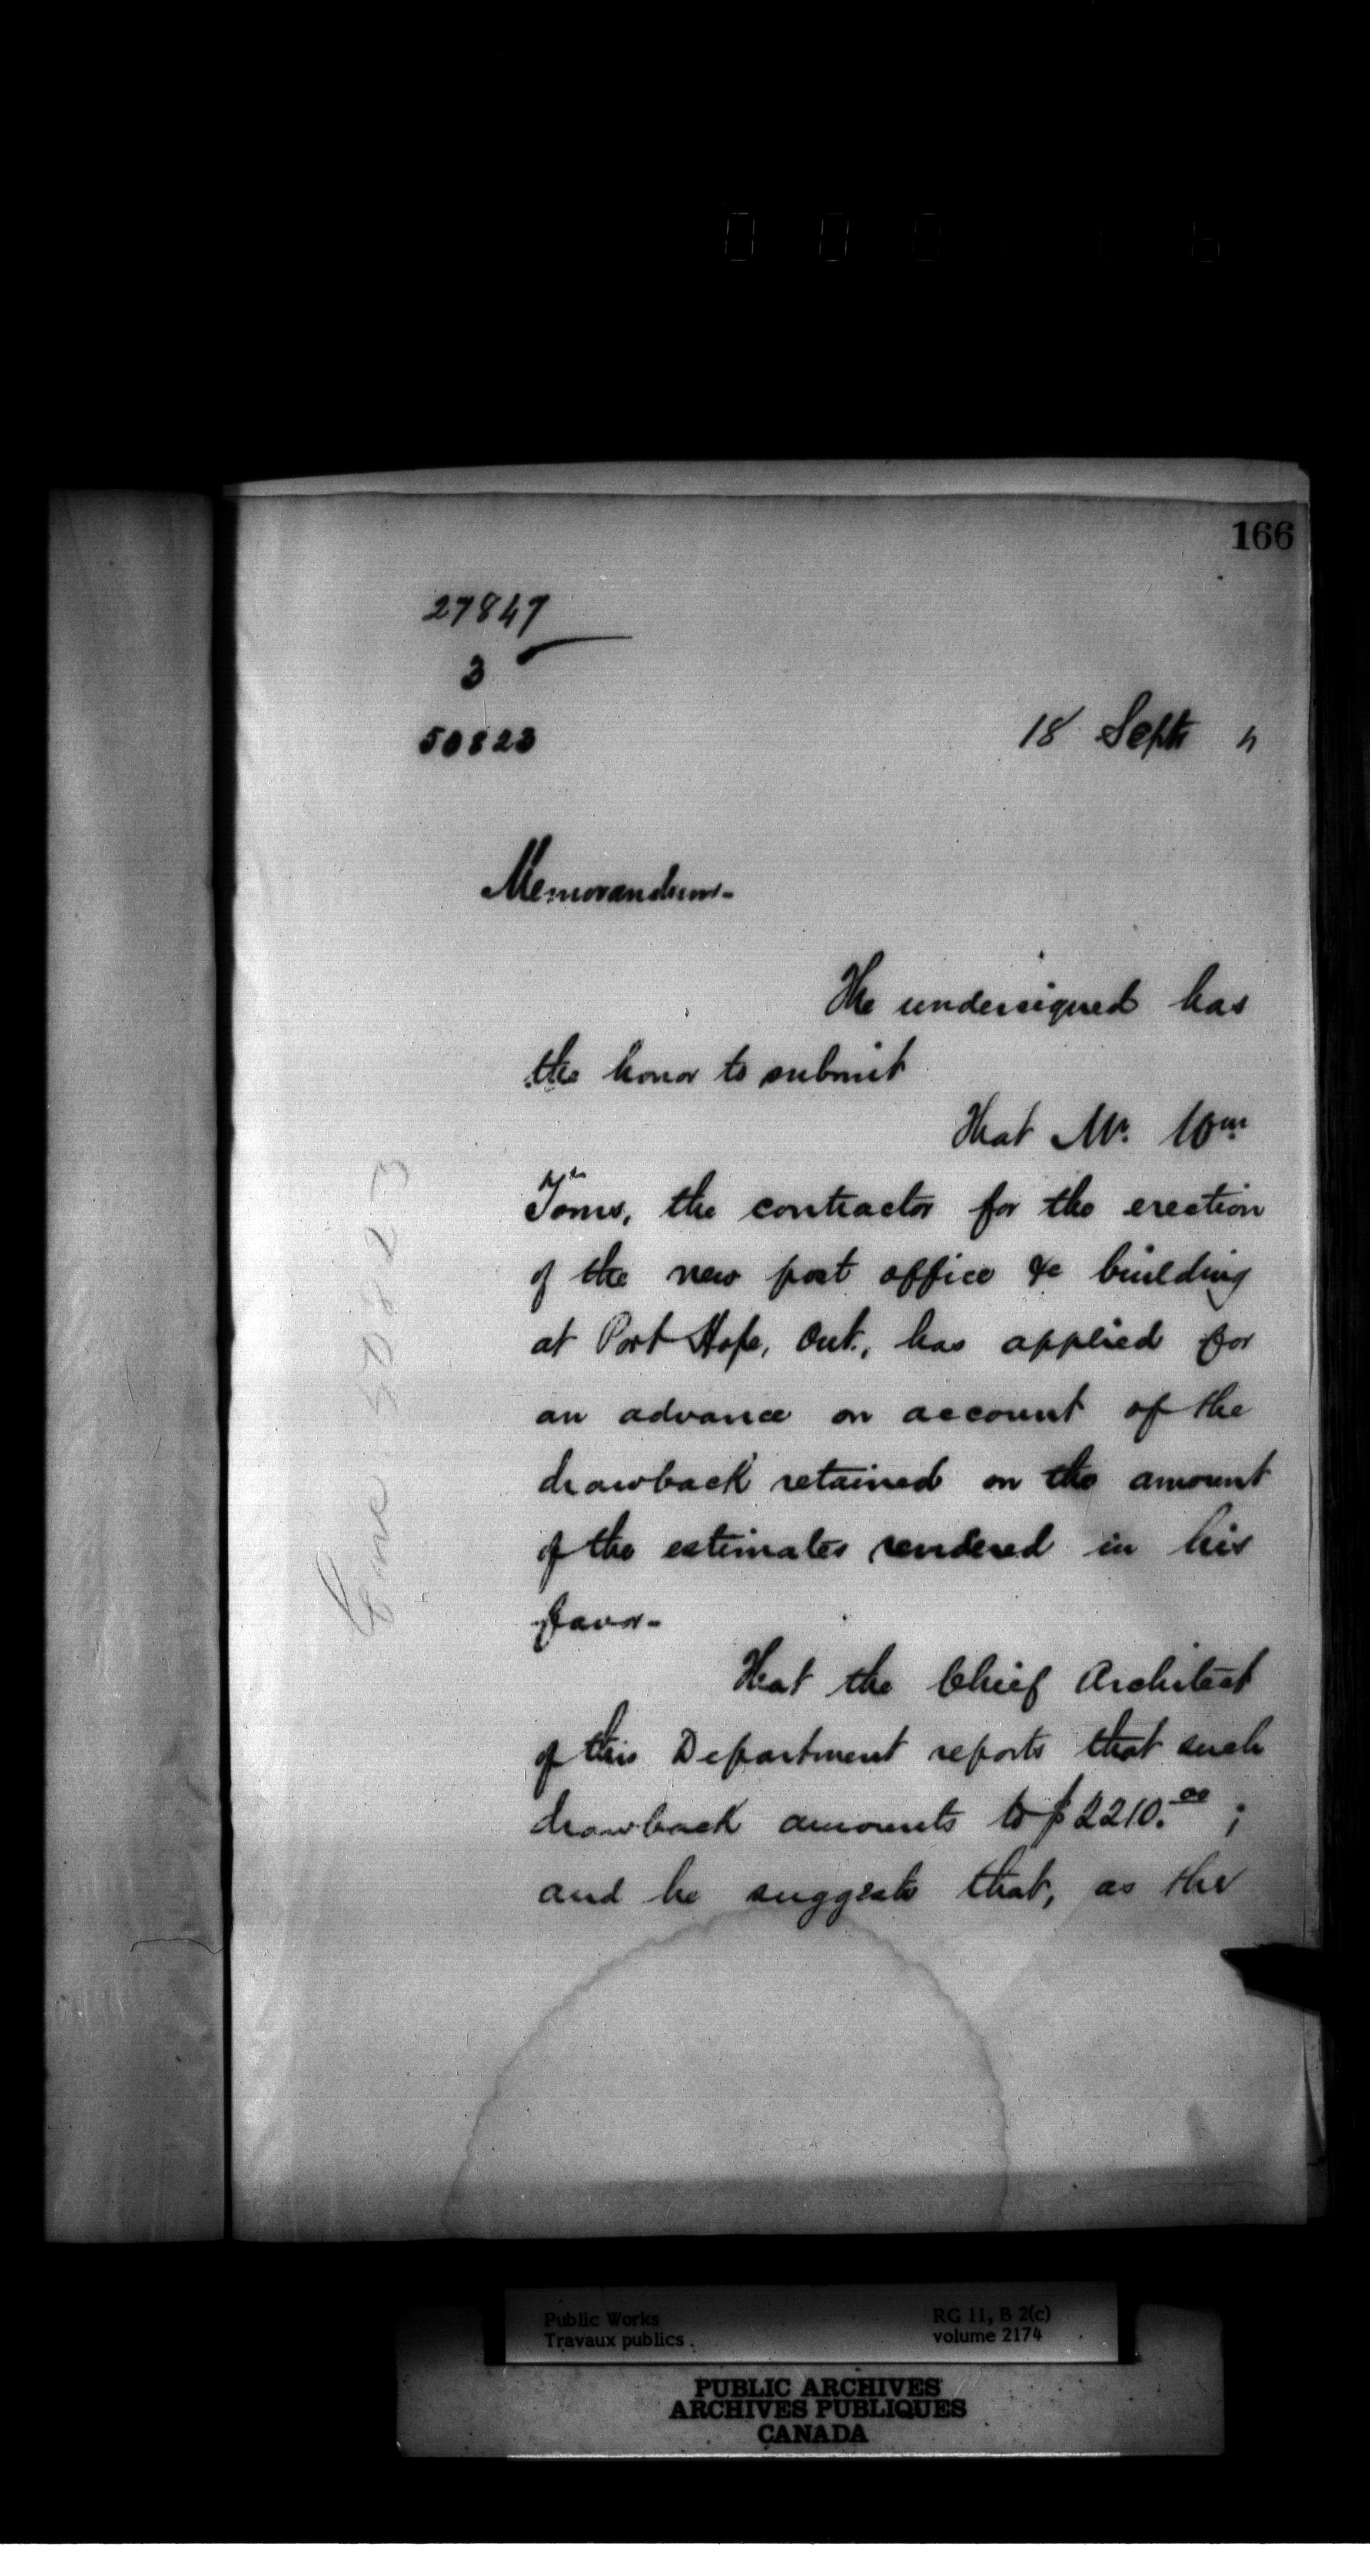 166
27847
3
50823
18 Septr "
Memorandum-
The undersigned has
the honor to submit
That Mr. Wm
Toms, the contractor for the erection
of the new post office &c building
at Port Hope, Ont., has applied for
an advance on account of the
drawback retained on the amount
of the estimates rendered in his
favor-
That the Chief Architect
of this Department reports that such
drawback amounts to $2210.00 ;
and he suggests that, as the
50823
Public Works
Travaux publics
RG 11, B 2(c)
volume 2174
PUBLIC ARCHIVES
ARCHIVES PUBLIQUES
CANADA